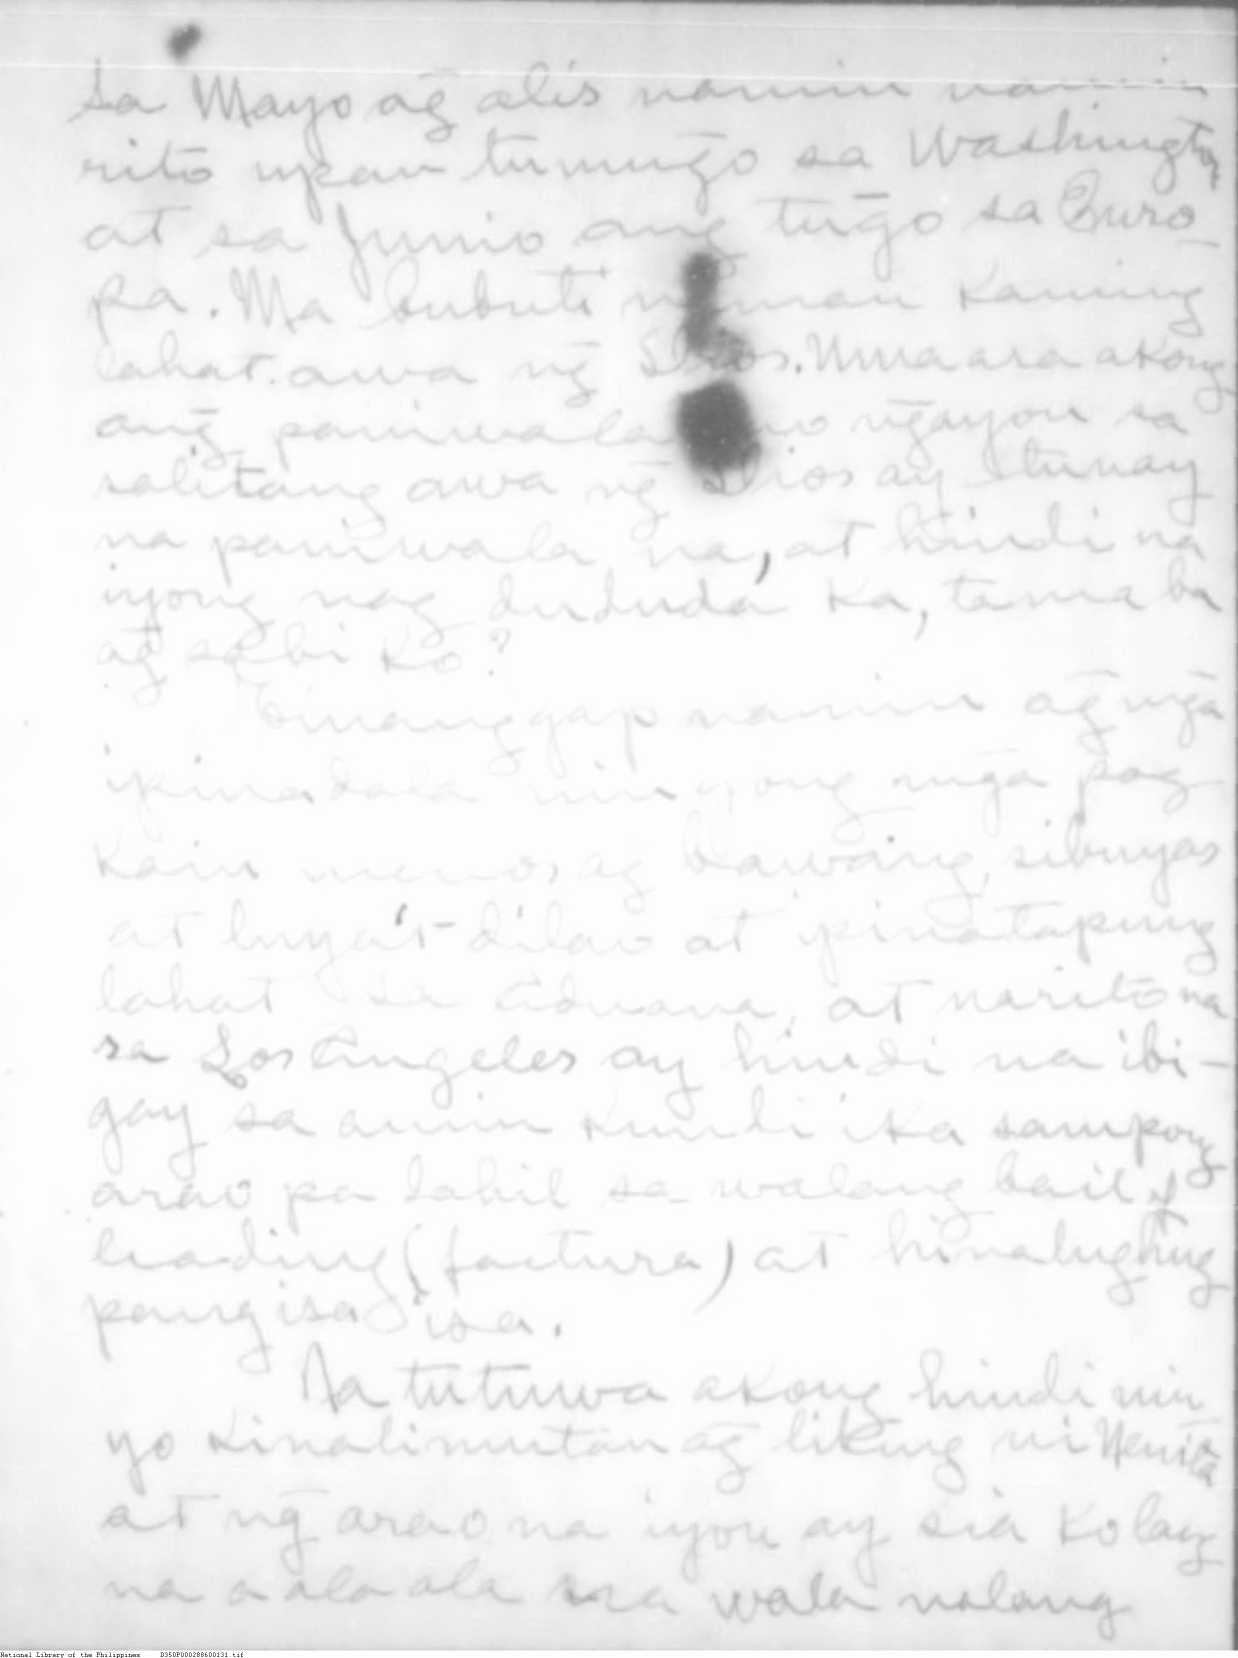 Sa Mayo ag̃ alis namin namin
rito upan tumug̃o sa Washington
at sa Junio ang tug̃o sa Euro-
pa. Ma bubuti naman kaming
lahat. awa ng̃ Dios. Umaasa akong
ang̃ paniwala mo ng̃ayon sa
salitang awa ng̃ Dios ay tunay
na paniwala na, at hindi na
iyong nag dududa ka, tama ba
ag̃ sabi ko?
Tinanggap namin ag̃ mg̃a
ipinadala ninyong mg̃a pag
kain menos ag̃ bawang, sibuyas
at luya't-dilao at ipinatapung
lahat sa Aduana, at narito na
sa Los Angeles ay hindi na ibi-
gay sa amin kundi ika sampong
arao pa dahil sa walang bail of
leading (factura) at hinalughug
pang isa isa.
Na tutuwa akong hindi nin
yo kinalimutan ag̃ liking ni Nenita
at ng̃ arao na iyon ay sia ko lang
na aalaala wala nalang